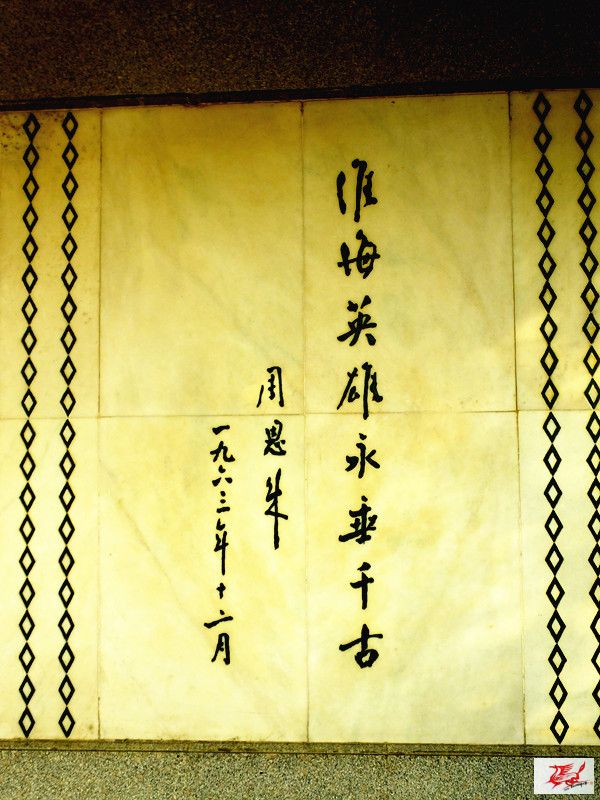 淮海英雄永垂千古
周恩来
一九六三年十二月